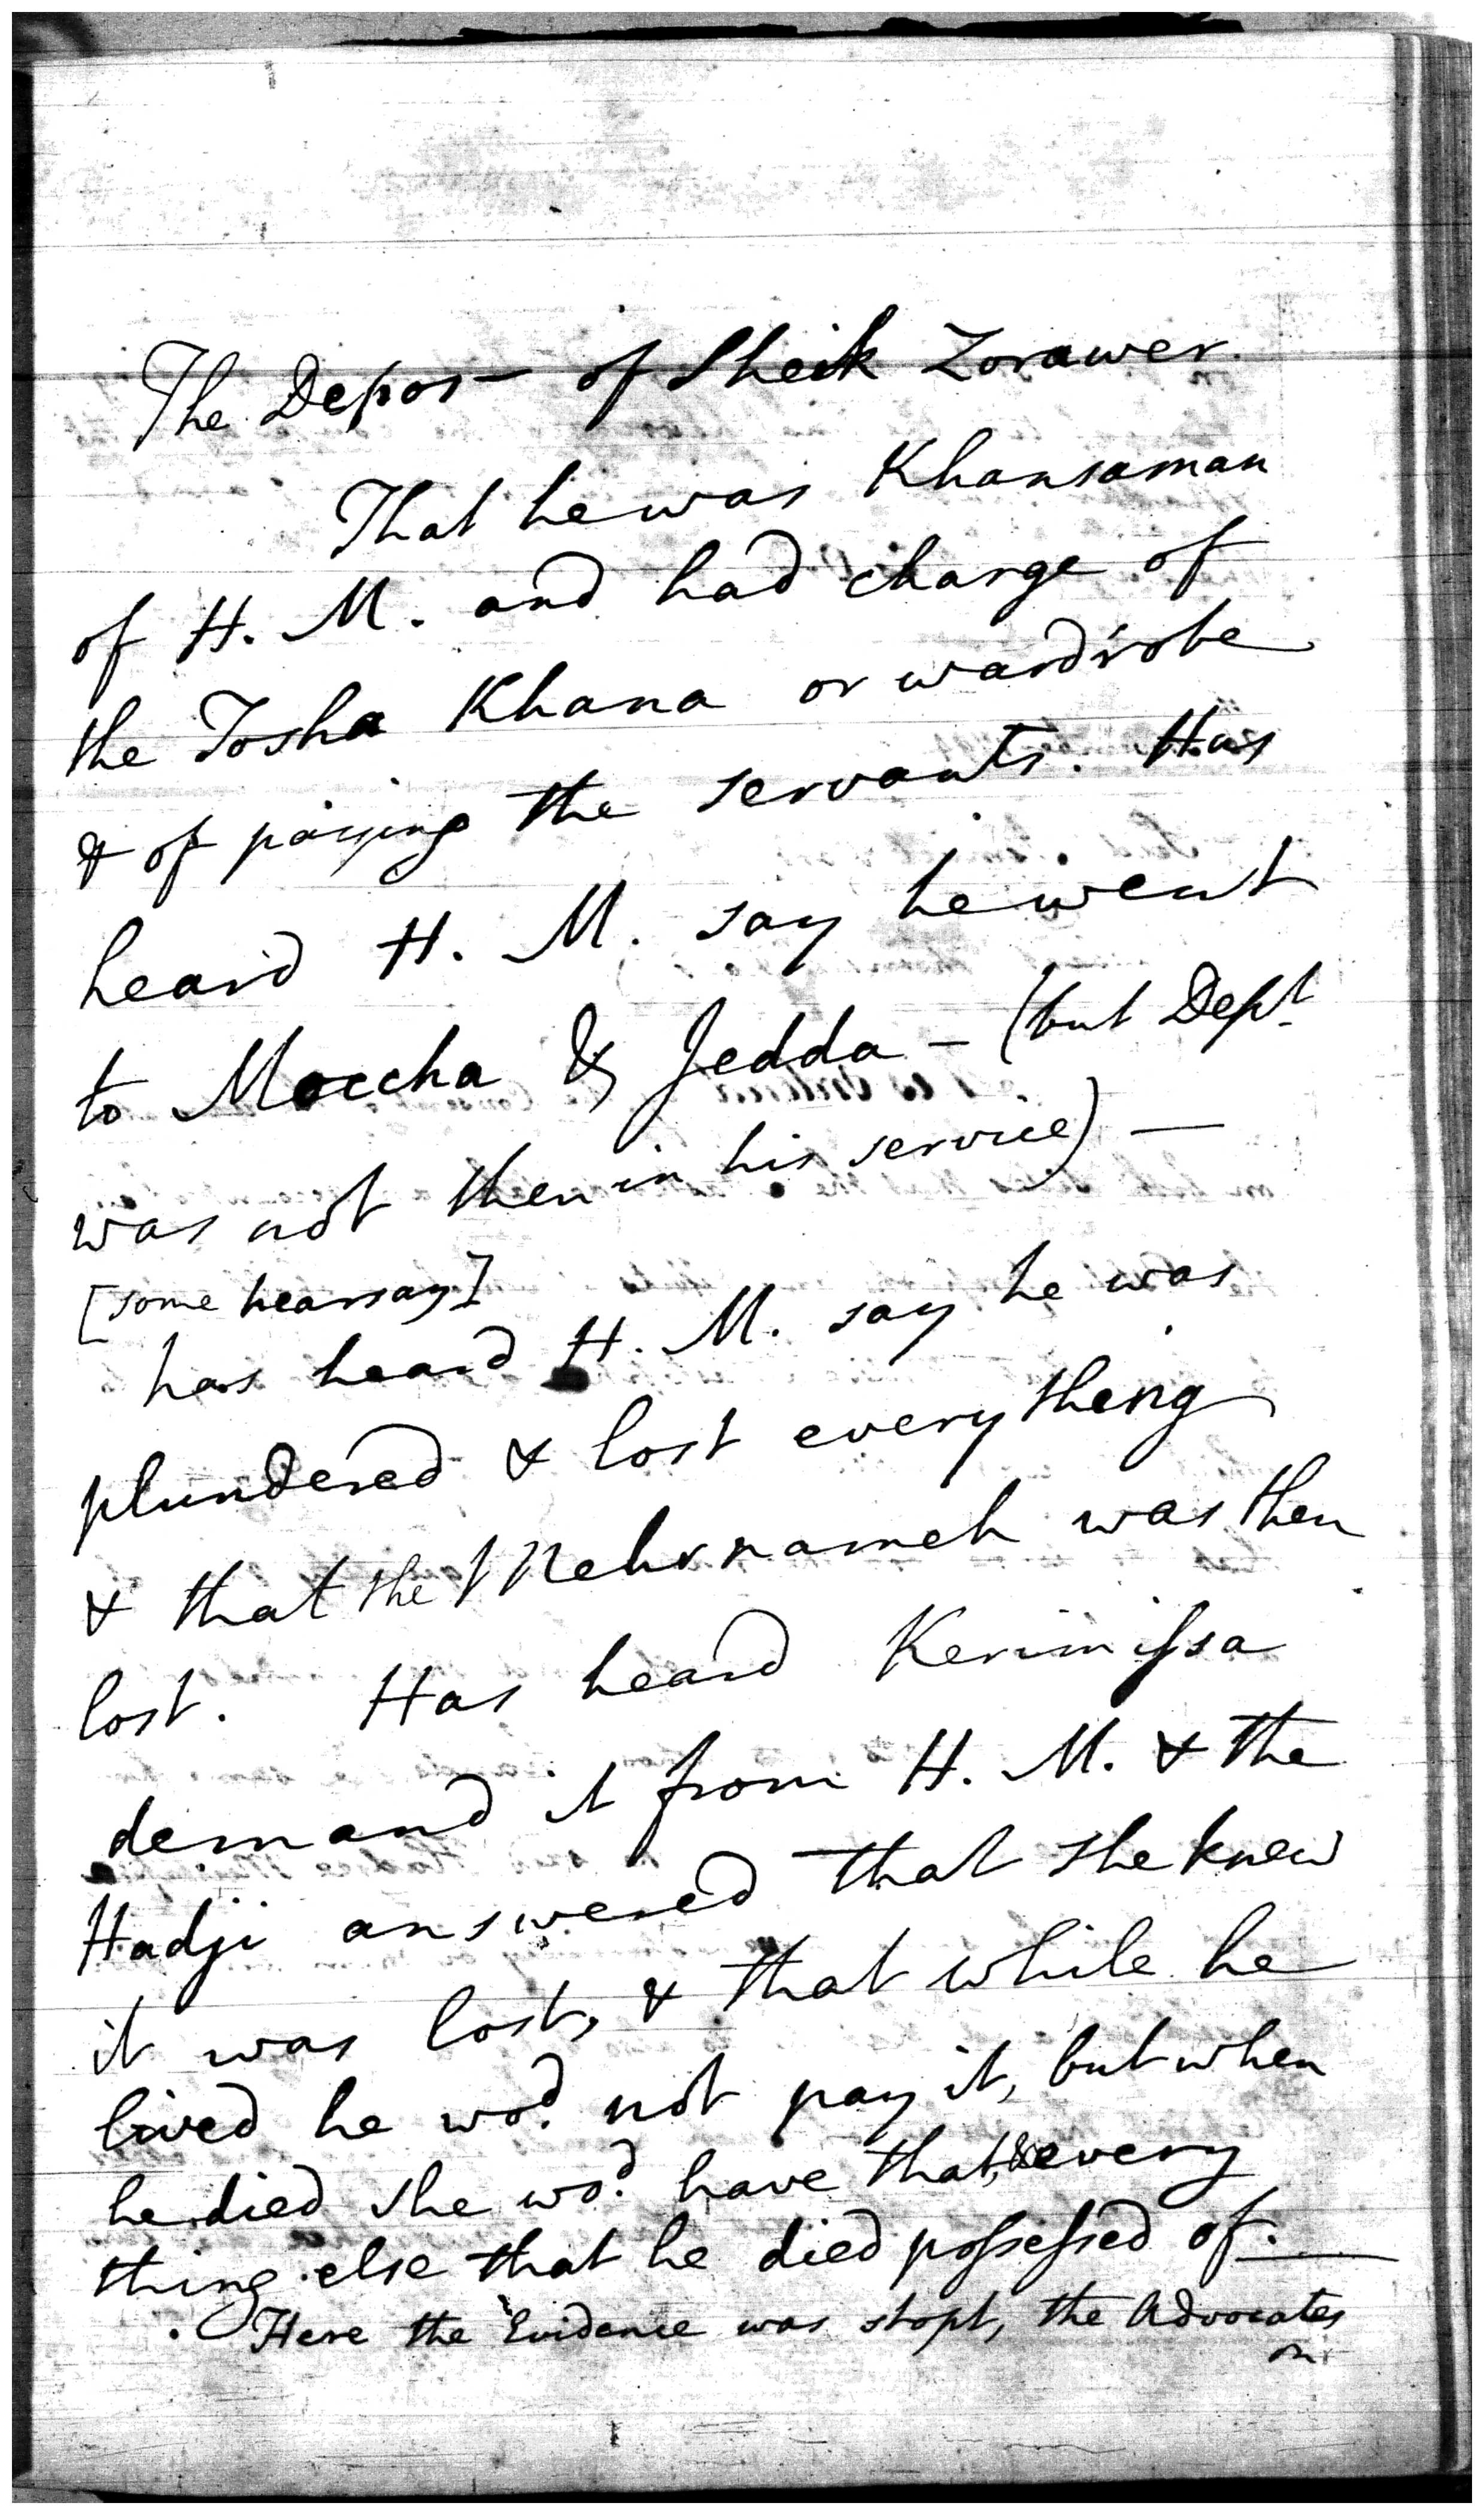 The Depos— of Sheik Zorawer.
That he was Khansaman
of H. M. and had charge of
the Tosha Khana or wardrobe
& of paying the servants. Has
heard H. M. say he went
to Moccha & Jedda — (but Dept
was not then in his service) —
[some hearsay]
has heard H. M. say he was
plundered & lost every thing
& that the Mehrnameh was then
lost. Has heard Kerimissa
demand it from H. M. & the
Hadji answered that she knew
it was lost, & that while he
lived he wod. not pay it, but when
he died she wod. have that, & every
thing else that he died possessed of.—
Here the Evidence was stopt, the Advocates
on